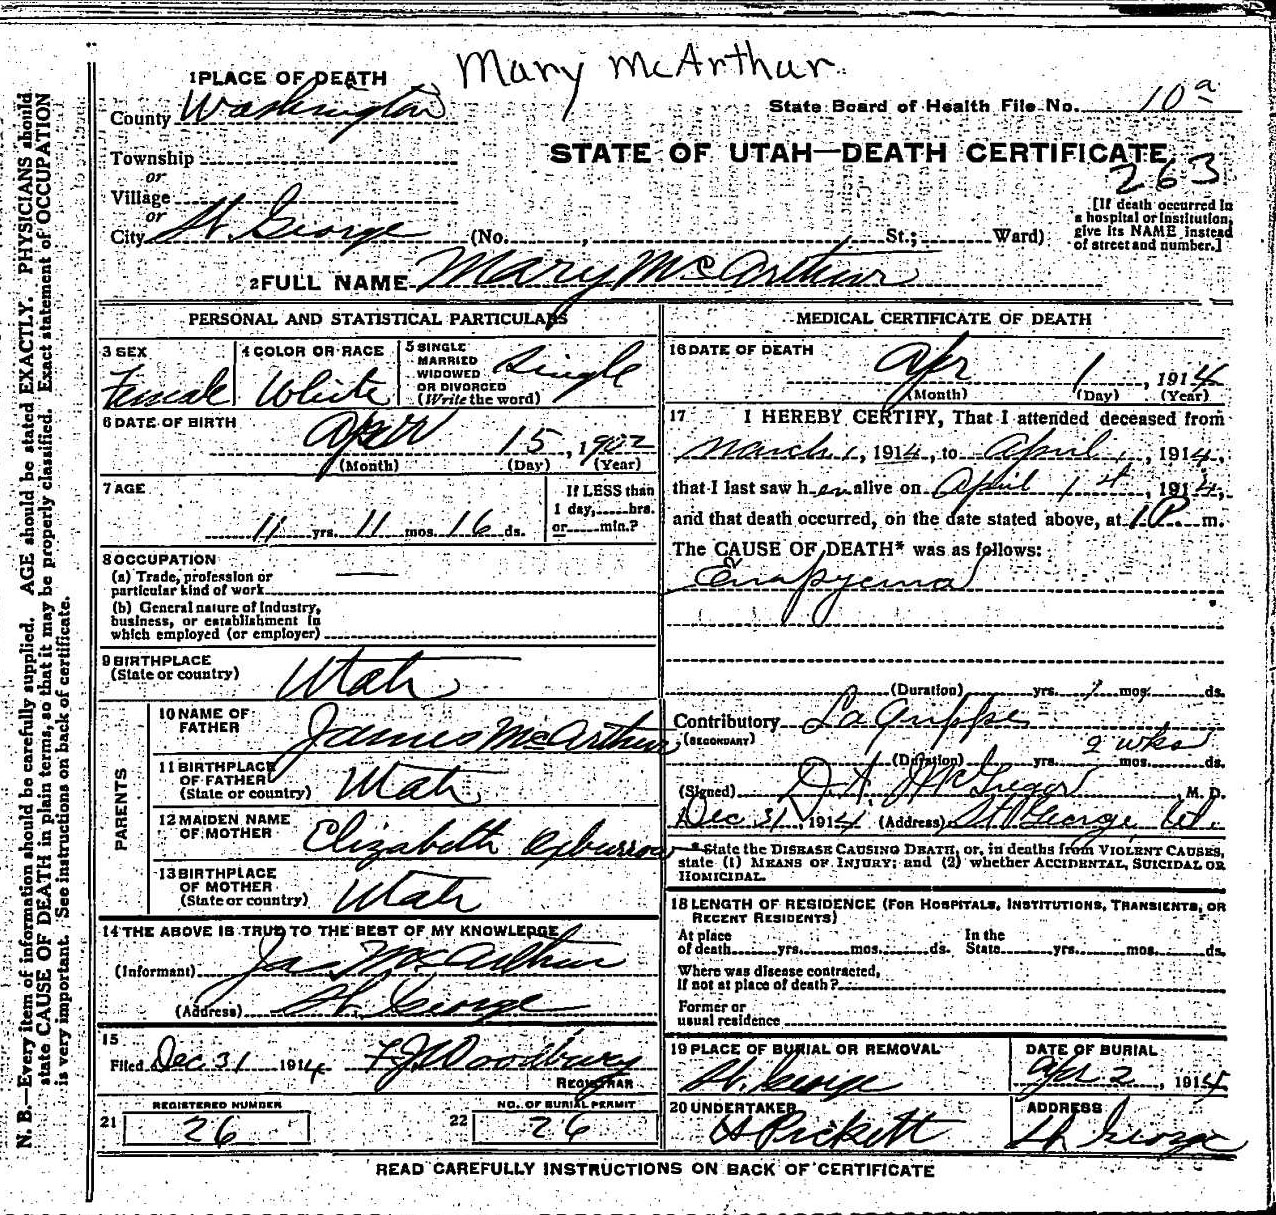 Mary McArthur
1 PLACE OF DEATH
County Washington
State Board of Health File No. 10a
Township
or
Village
or
City St. George (No. , St.; Ward)
STATE OF UTAH—DEATH CERTIFICATE
263
[If death occurred in
a hospital or institution,
give its NAME instead
of street and number.]
2 FULL NAME Mary McArthur
PERSONAL AND STATISTICAL PARTICULARS
3 SEX
Female
4 COLOR OR RACE
White
5 SINGLE
MARRIED
WIDOWED
OR DIVORCED
(Write the word)
Single
6 DATE OF BIRTH
Apr 15, 1902
(Month) (Day) (Year)
7 AGE
11 yrs. 11 mos. 16 ds.
If LESS than
1 day, hrs.
or min.?
8 OCCUPATION
(a) Trade, profession or
particular kind of work —
(b) General nature of industry,
business, or establishment in
which employed (or employer)
9 BIRTHPLACE
(State or country)
Utah
PARENTS
10 NAME OF
FATHER
James McArthur
11 BIRTHPLACE
OF FATHER
(State or country)
Utah
12 MAIDEN NAME
OF MOTHER
Elizabeth
13 BIRTHPLACE
OF MOTHER
(State or country)
Utah
14 THE ABOVE IS TRUE TO THE BEST OF MY KNOWLEDGE
(Informant) Jas McArthur
(Address) St. George
15
Filed Dec 31 1914 F J Woodbury
REGISTRAR
REGISTERED NUMBER
21 26
NO. OF BURIAL PERMIT
22 26
MEDICAL CERTIFICATE OF DEATH
16 DATE OF DEATH
Apr 1, 1914
(Month) (Day) (Year)
17 I HEREBY CERTIFY, That I attended deceased from
March 1, 1914, to April 1, 1914,
that I last saw her alive on April 1st, 1914,
and that death occurred, on the date stated above, at 1 P. m.
The CAUSE OF DEATH* was as follows:
Empyema
(Duration) yrs. 1 mos. ds.
Contributory La Grippe
(SECONDARY)
2 wks
(Duration) yrs. mos. ds.
(Signed) D. A. McGregor M. D.
Dec 31, 1914 (Address) St George Ut.
* State the DISEASE CAUSING DEATH, or, in deaths from VIOLENT CAUSES,
state (1) MEANS OF INJURY; and (2) whether ACCIDENTAL, SUICIDAL OR
HOMICIDAL.
18 LENGTH OF RESIDENCE (FOR HOSPITALS, INSTITUTIONS, TRANSIENTS, OR
RECENT RESIDENTS)
At place
of death yrs. mos. ds.
In the
State yrs. mos. ds.
Where was disease contracted,
if not at place of death?
Former or
usual residence
19 PLACE OF BURIAL OR REMOVAL
St. George
DATE OF BURIAL
Apr 2, 1914
20 UNDERTAKER
Pickett
ADDRESS
St George
READ CAREFULLY INSTRUCTIONS ON BACK OF CERTIFICATE
N. B.—Every item of information should be carefully supplied. AGE should be stated EXACTLY. PHYSICIANS should
state CAUSE OF DEATH in plain terms, so that it may be properly classified. Exact statement of OCCUPATION
is very important. See instructions on back of certificate.